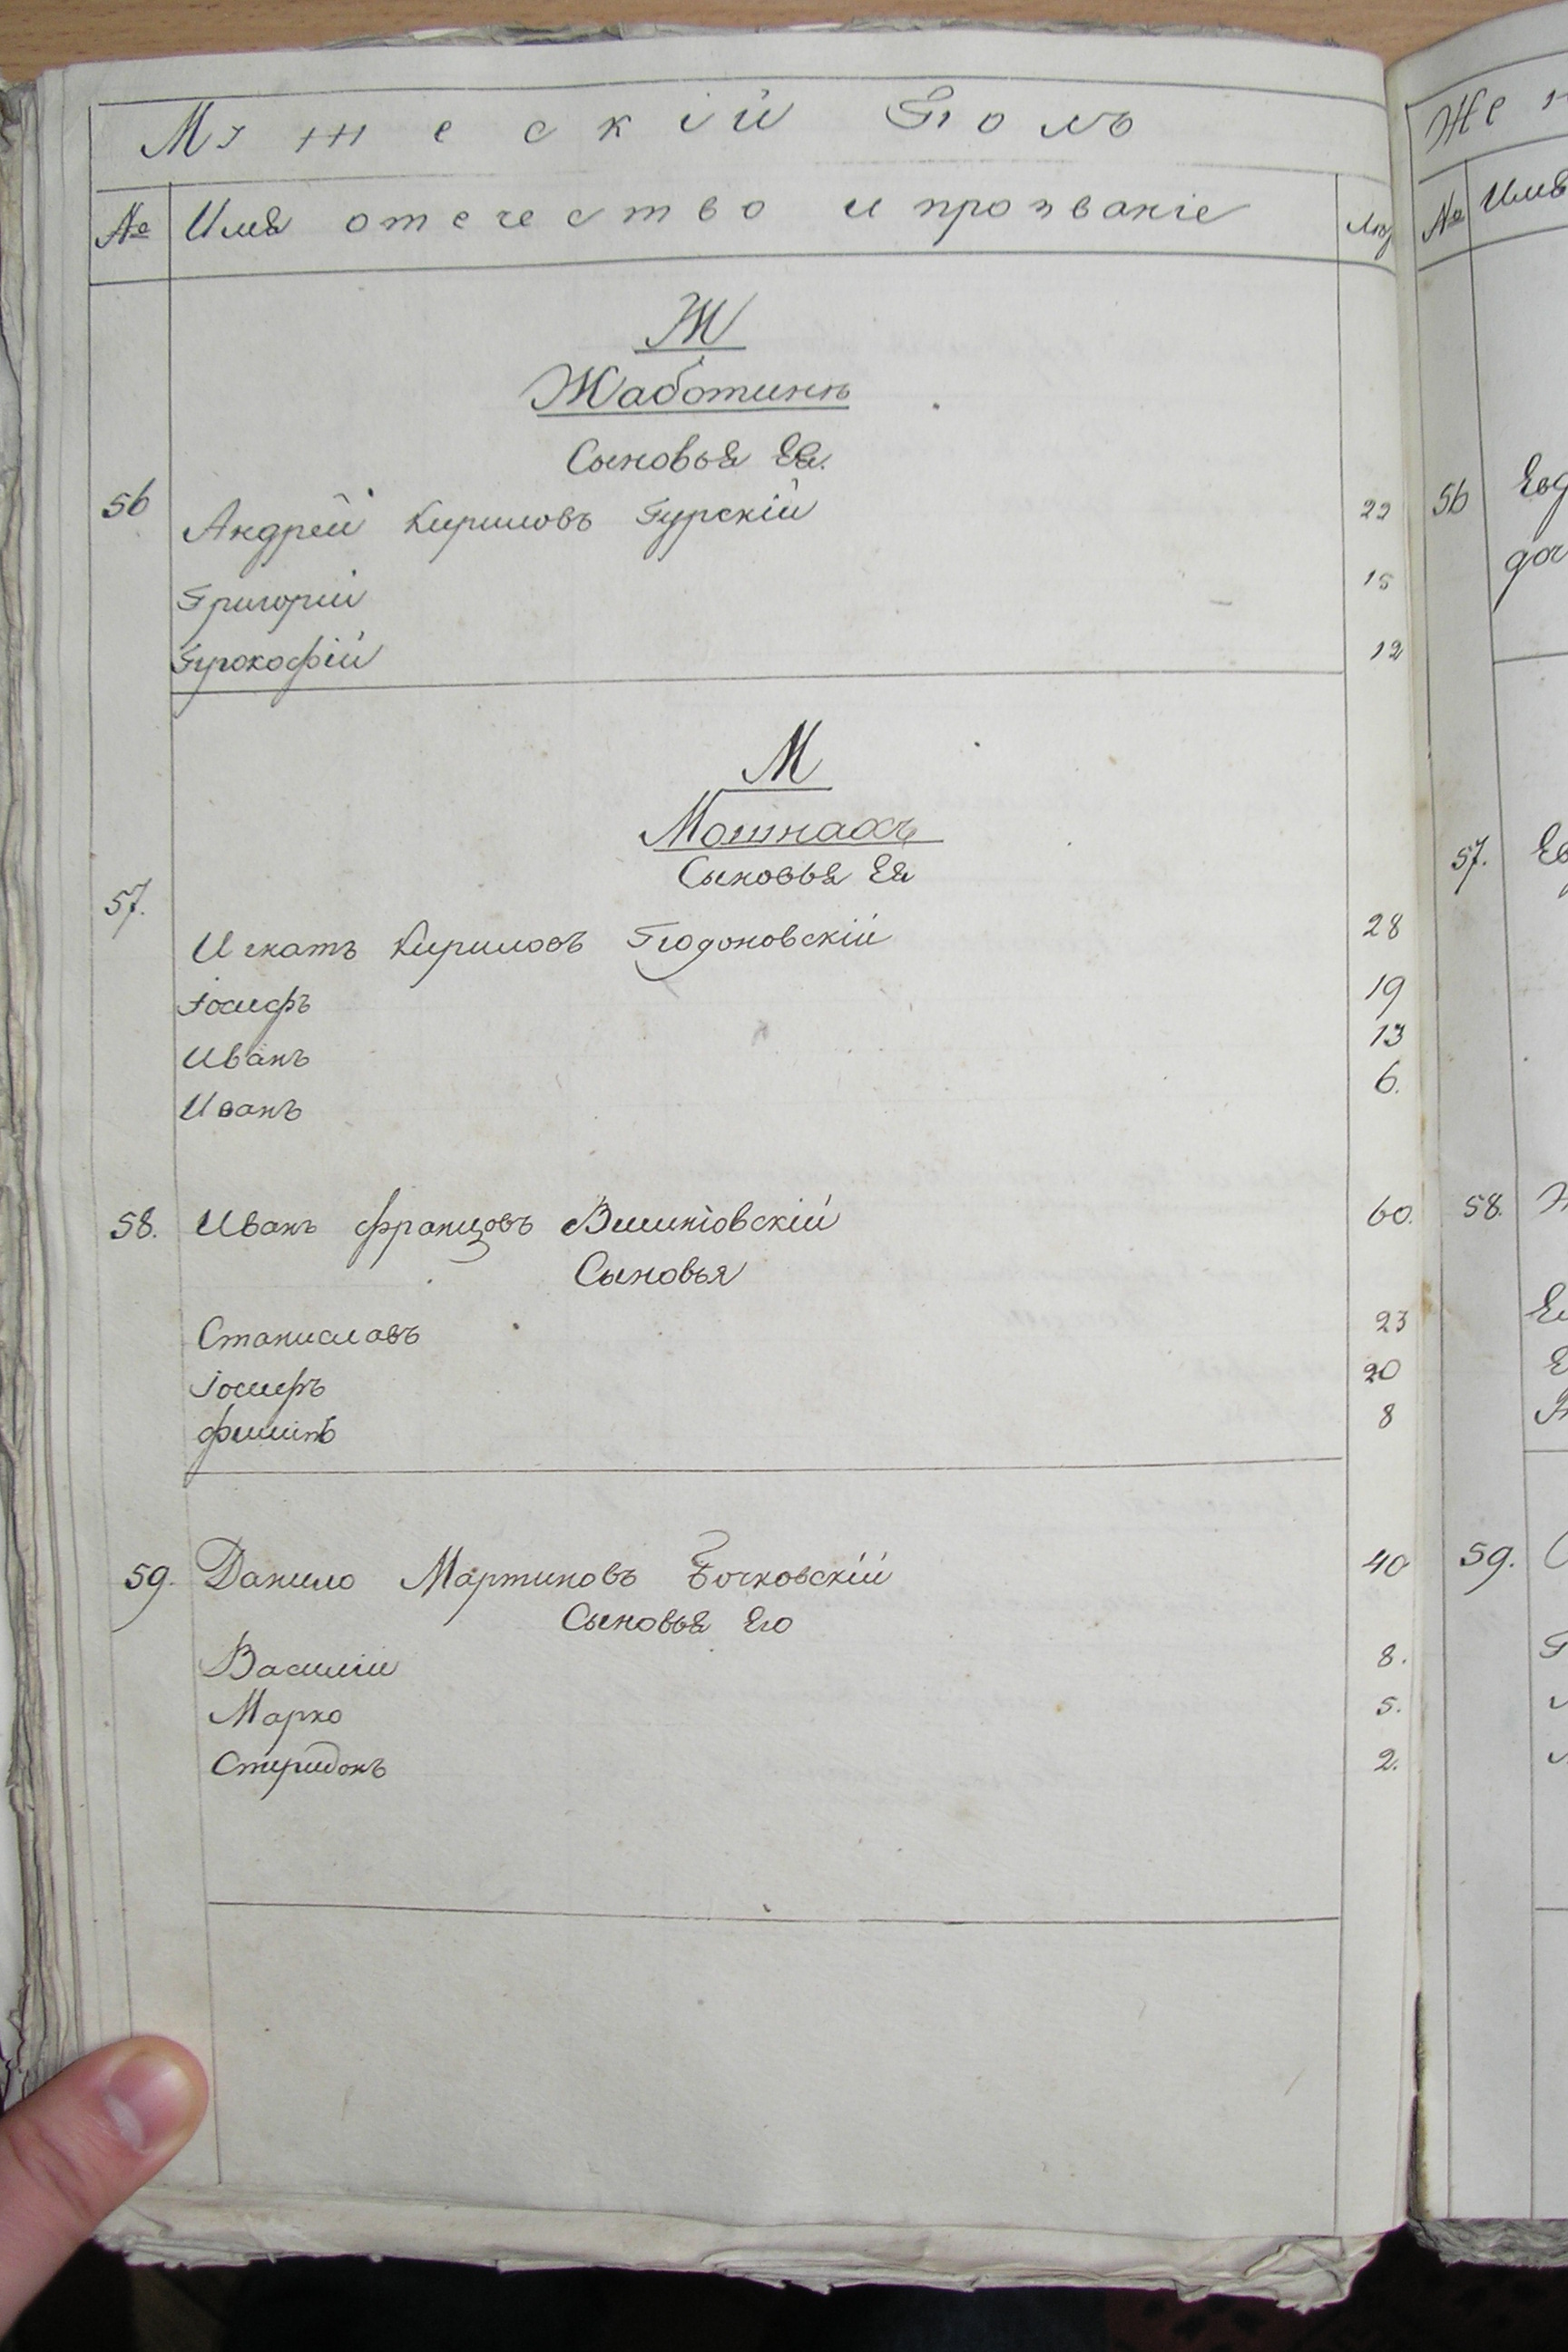 Мужескій Полъ
№ Имя отечество и прозваніе Лѣт
Ж
Жаботинъ
Сыновья Ея.
56 Андрей Кириловъ Гурскій 22
Григорій 15
Прокофій 12
М
Мошнахъ
Сыновья Ея
57. Игнатъ Кириловъ 28
Іосифъ 19
Иванъ 13
Иванъ 6.
58. Иванъ Францовъ Вишнѣовскій 60.
Сыновья
Станиславъ 23
Іосифъ 20
Филипъ 8
59. Данило Мартиновъ Бочковскій 40
Сыновья Его
Василій 8.
Марко 5.
Спиридонъ 2.
Же
№ Имя
56 Евд
доч
57. Ев
58.
59.